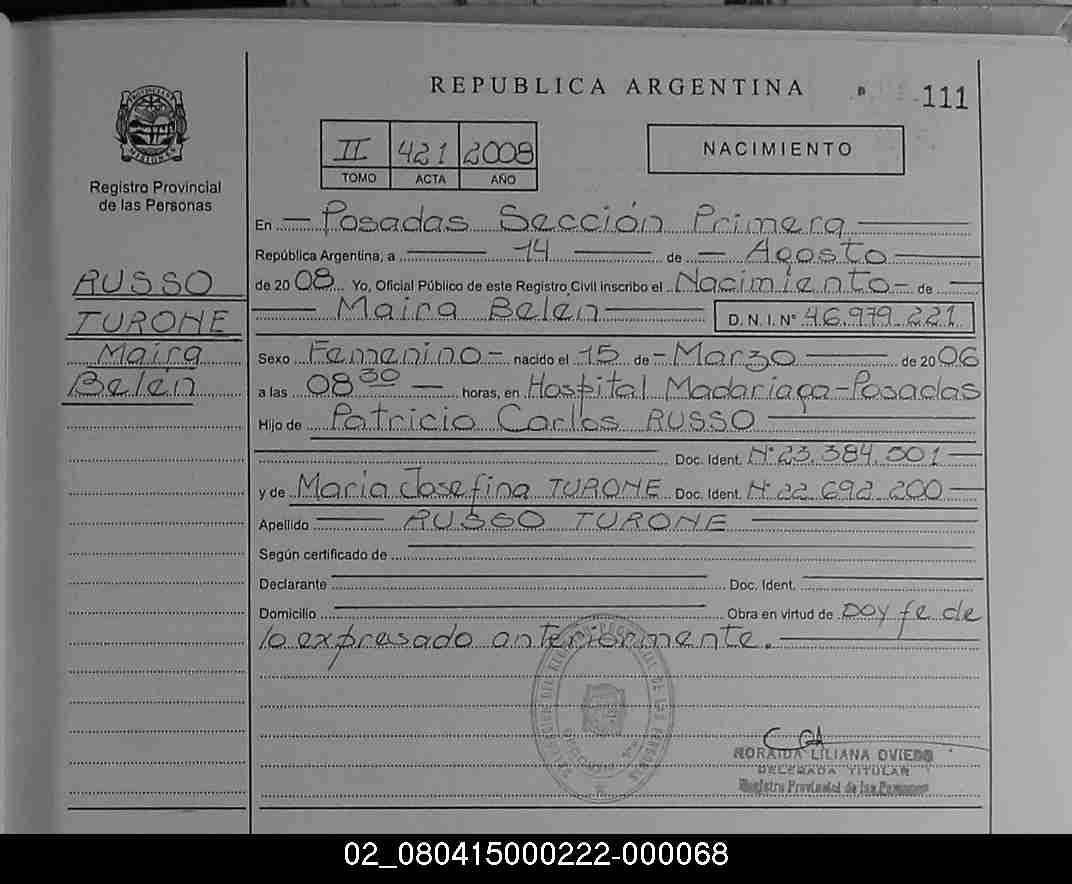 REPUBLICA ARGENTINA
111
PROVINCIA DE MISIONES
Registro Provincial
de las Personas
II 421 2008
TOMO ACTA AÑO
NACIMIENTO
RUSSO
TURONE
Maira
Belén
En Posadas Sección Primera
República Argentina, a 14 de Agosto
de 2008 Yo, Oficial Público de este Registro Civil inscribo el Nacimiento de
Maira Belén D. N. I. N° 46.979.221
Sexo Femenino nacido el 15 de Marzo de 2006
a las 08 30 horas, en Hospital Madariaga-Posadas
Hijo de Patricio Carlos RUSSO
Doc. Ident. N° 23.384.501
y de Maria Josefina TURONE Doc. Ident. N° 22.692.200
Apellido RUSSO TURONE
Según certificado de
Declarante Doc. Ident.
Domicilio Obra en virtud de Doy fe de
lo expresado anteriormente.
NORAIDA LILIANA OVIEDO
DELEGADA TITULAR
Registro Provincial de las Personas
02_080415000222-000068